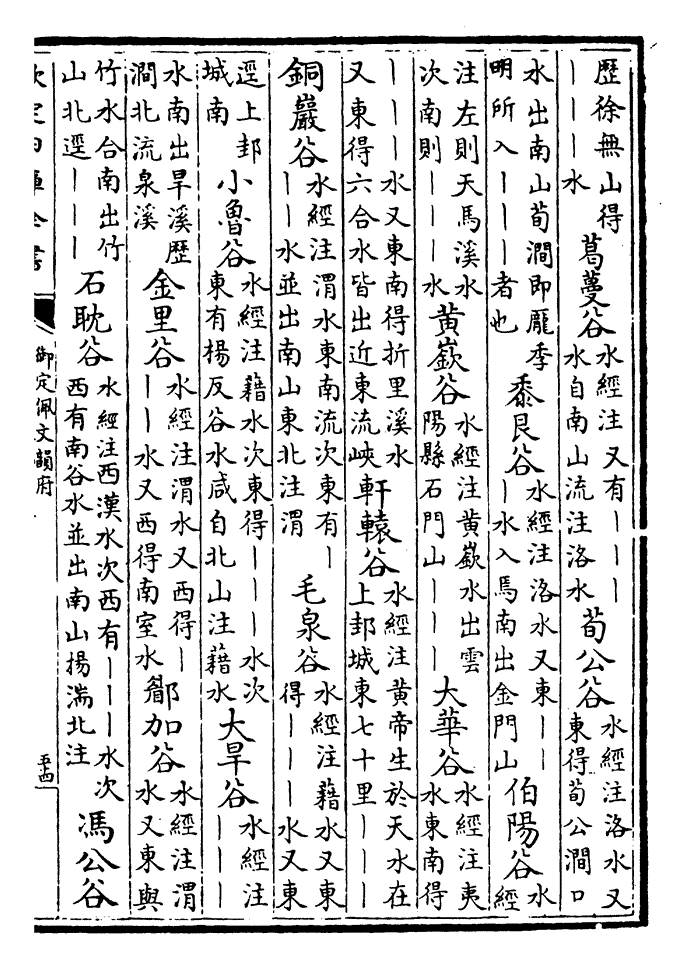 歷徐無山得
｜｜｜水
葛蔓谷
水經注又有｜｜｜
水自南山流注洛水
荀公谷
水經注洛水又
東得荀公澗口
水出南山荀澗即龎季
明所入｜｜｜者也
黍艮谷
水經注洛水又東｜｜
｜水入焉南出金門山
伯陽谷
水
經
注左則天馬溪水
次南則｜｜｜水
黃嶔谷
水經注黃嶔水出雲
陽縣石門山｜｜｜
大華谷
水經注夷
水東南得
｜｜｜水又東南得折里溪水
又東得六合水皆出近東流峽
軒轅谷
水經注黃帝生於天水在
上邽城東七十里｜｜｜
銅巖谷
水經注渭水東南流次東有｜
｜｜水並出南山東北注渭
毛泉谷
水經注藉水又東
得｜｜｜水又東
逕上邽
城南
小魯谷
水經注藉水次東得｜｜｜水次
東有楊反谷水咸自北山注藉水
大旱谷
水經注
｜｜｜
水南出旱溪歷
澗北流泉溪
金里谷
水經注渭水又西得｜
｜｜水又西得南室水
加谷
水經注渭
水又東與
竹水合南出竹
山北逕｜｜｜
石耽谷
水經注西漢水次西有｜｜｜水次
西有南谷水並出南山揚湍北注
馮公谷
欽定四庫全書
御定佩文韻府